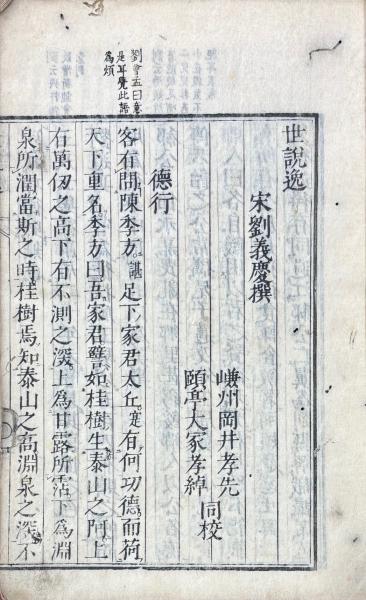 世說逸
宋劉義慶撰
峨州岡井孝先
頤亭大冢孝綽
同校
德行
客有問陳季方諶足下家君太丘寔有何功德而荷
天下重名季方曰吾家君譬如桂樹生泰山之阿上
有萬仞之高下有不測之深上為甘露所霑下為淵
泉所潤當斯之時桂樹焉知泰山之高淵泉之深不
劉會孟曰意
是耳覺此語
為煩